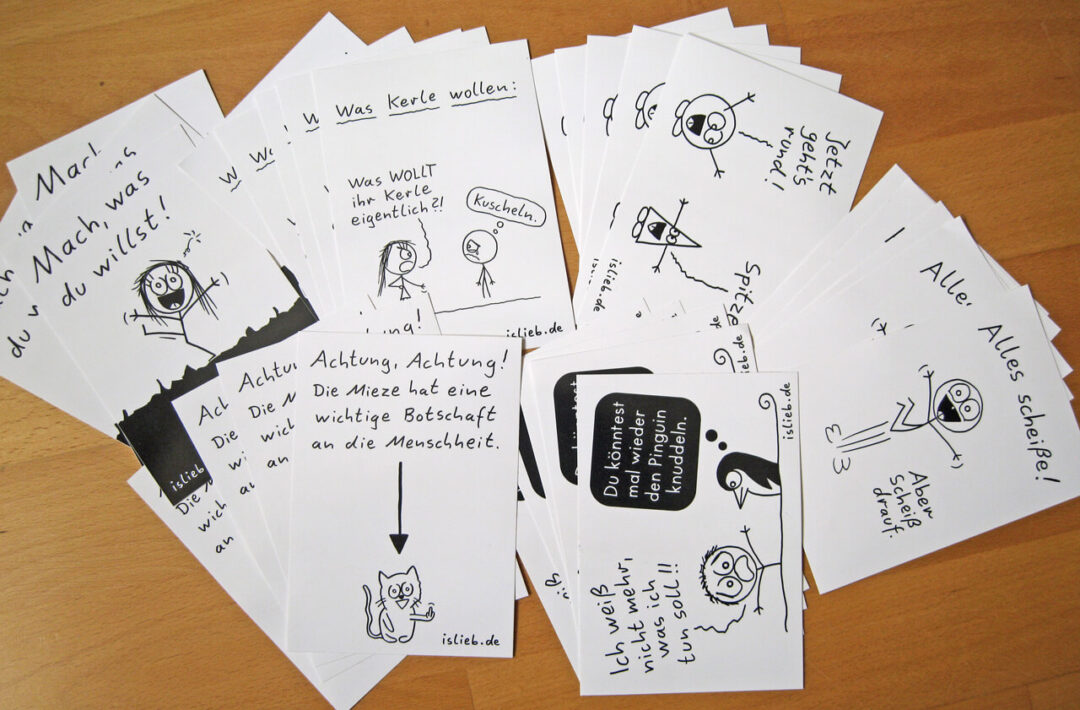 Mach, was
du willst!
islieb
Was Kerle wollen:
Was WOLLT
ihr Kerle
eigentlich?!
Kuscheln.
islieb.de
Jetzt
geht's
rund!
Spitze
islieb.de
Achtung, Achtung!
Die Mieze hat eine
wichtige Botschaft
an die Menschheit.
islieb.de
Du könntest
mal wieder
den Pinguin
knuddeln.
Ich weiß
nicht mehr,
was ich
tun soll!!
islieb.de
Alles scheiße!
Aber
Scheiß
drauf.